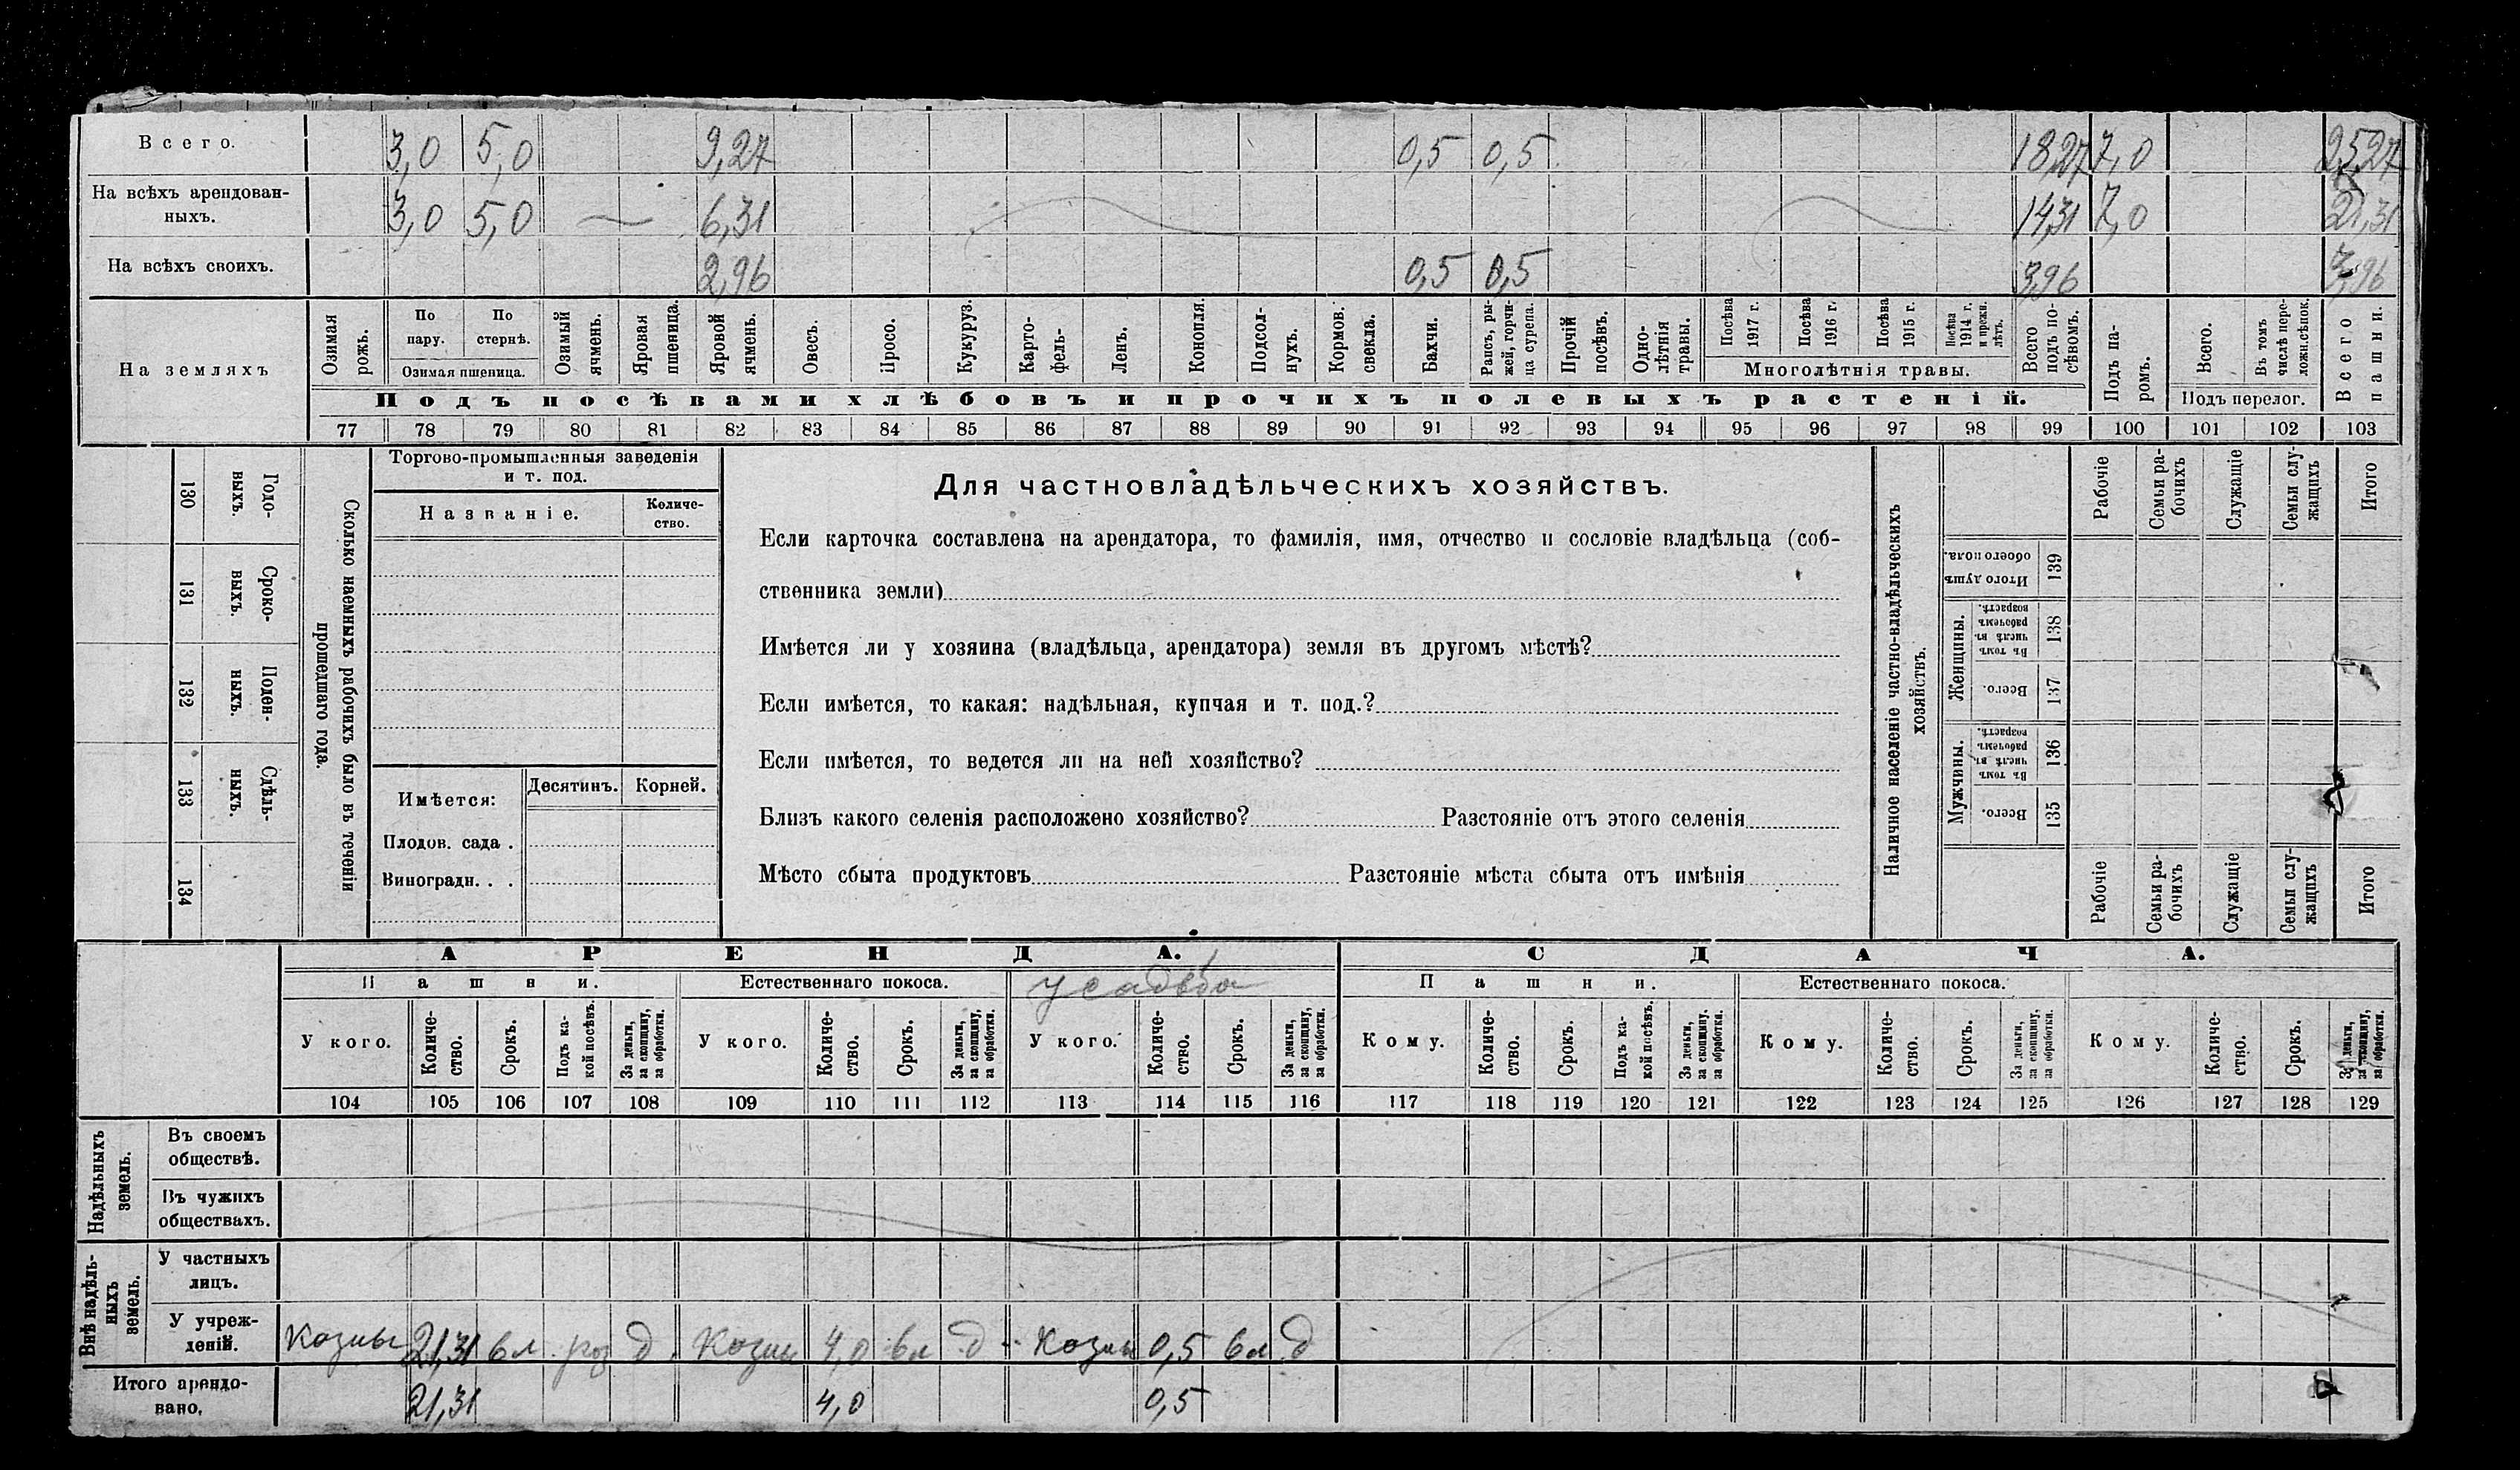 Всего. 3,0 5,0 9,27 0,5 0,5 18,27 7,0 25,27
На всѣхъ арендован-
ныхъ. 3,0 5,0 — 6,31 14,31 7,0 21,31
На всѣхъ своихъ. 2,96 0,5 0,5 3,96 3,96
На земляхъ
Озимая рожь.
По пару.
По стернѣ.
Озимая пшеница.
Озимый ячмень.
Яровая пшеница.
Яровой ячмень.
Овесъ.
Просо.
Кукуруз.
Карто-
фель.
Ленъ.
Конопля.
Подсол-
нухъ.
Кормов. свекла.
Бахчи.
Рапсъ, ры-
жей, горчи-
ца сурепа.
Прочій посѣвъ.
Одно-
лѣтнія травы.
Посѣва 1917 г.
Посѣва 1916 г.
Посѣва 1915 г.
Посѣва 1914 г. и прежн. лѣтъ.
Многолѣтнія травы.
Всего подъ по-
сѣвомъ.
Подъ посѣвами хлѣбовъ и прочихъ полевыхъ растеній.
Подъ па-
ромъ.
Всего.
Въ томъ числѣ пере-
ложн.сѣнок.
Подъ перелог.
Всего пашни.
77 78 79 80 81 82 83 84 85 86 87 88 89 90 91 92 93 94 95 96 97 98 99 100 101 102 103
130 Годо-
выхъ.
131 Сроко-
выхъ.
132 Поден-
ныхъ.
133 Сдѣль-
ныхъ.
134
Сколько наемныхъ рабочихъ было въ теченіи
прошедшаго года.
Торгово-промышленныя заведенія
и т. под.
Названіе. Количе-
ство.
Имѣется: Десятинъ. Корней.
Плодов. сада .
Виноградн. . .
Для частновладѣльческихъ хозяйствъ.
Если карточка составлена на арендатора, то фамилія, имя, отчество и сословіе владѣльца (соб-
ственника земли)
Имѣется ли у хозяина (владѣльца, арендатора) земля въ другомъ мѣстѣ?
Если имѣется, то какая: надѣльная, купчая и т. под.?
Если имѣется, то ведется ли на ней хозяйство?
Близъ какого селенія расположено хозяйство? Разстояніе отъ этого селенія
Мѣсто сбыта продуктовъ Разстояніе мѣста сбыта отъ имѣнія
Наличное населеніе частно-владѣльческихъ
хозяйствъ.
Рабочіе
Семьи ра-
бочихъ
Служащіе
Семьи слу-
жащихъ
Итого
Итого душъ обоего пола. 139
Женщины.
Въ томъ числѣ въ рабочемъ возрастѣ. 138
Всего. 137
Мужчины.
Въ томъ числѣ въ рабочемъ возрастѣ. 136
Всего. 135
Рабочіе
Семьи ра-
бочихъ
Служащіе
Семьи слу-
жащихъ
Итого
АРЕНДА. СДАЧА.
Пашни. Естественнаго покоса. усадьба Пашни. Естественнаго покоса.
У кого. Количе-
ство. Срокъ. Подъ ка-
кой посѣвъ. За деньги, за скопщину, за обработки.
У кого. Количе-
ство. Срокъ. За деньги, за скопщину, за обработки.
У кого. Количе-
ство. Срокъ. За деньги, за скопщину, за обработки.
Кому. Количе-
ство. Срокъ. Подъ ка-
кой посѣвъ. За деньги, за скопщину, за обработки.
Кому. Количе-
ство. Срокъ. За деньги, за скопщину, за обработки.
Кому. Количе-
ство. Срокъ. За деньги, за скопщину, за обработки.
104 105 106 107 108 109 110 111 112 113 114 115 116 117 118 119 120 121 122 123 124 125 126 127 128 129
Надѣльныхъ
земель.
Въ своемъ
обществѣ.
Въ чужихъ
обществахъ.
Внѣ надѣль-
ныхъ
земель.
У частныхъ
лицъ.
У учреж-
деній. Козны 21,31 6л. роз д. Козны 4,0 6л д Козны 0,5 6л. д
Итого арендо-
вано. 21,31 4,0 0,5